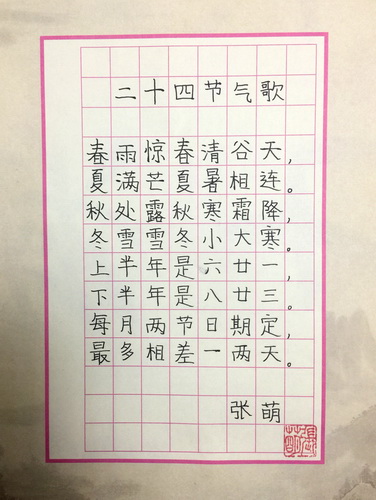 二十四节气歌
春雨惊春清谷天，
夏满芒夏暑相连。
秋处露秋寒霜降，
冬雪雪冬小大寒。
上半年是六廿一，
下半年是八廿三。
每月两节日期定，
最多相差一两天。
张萌